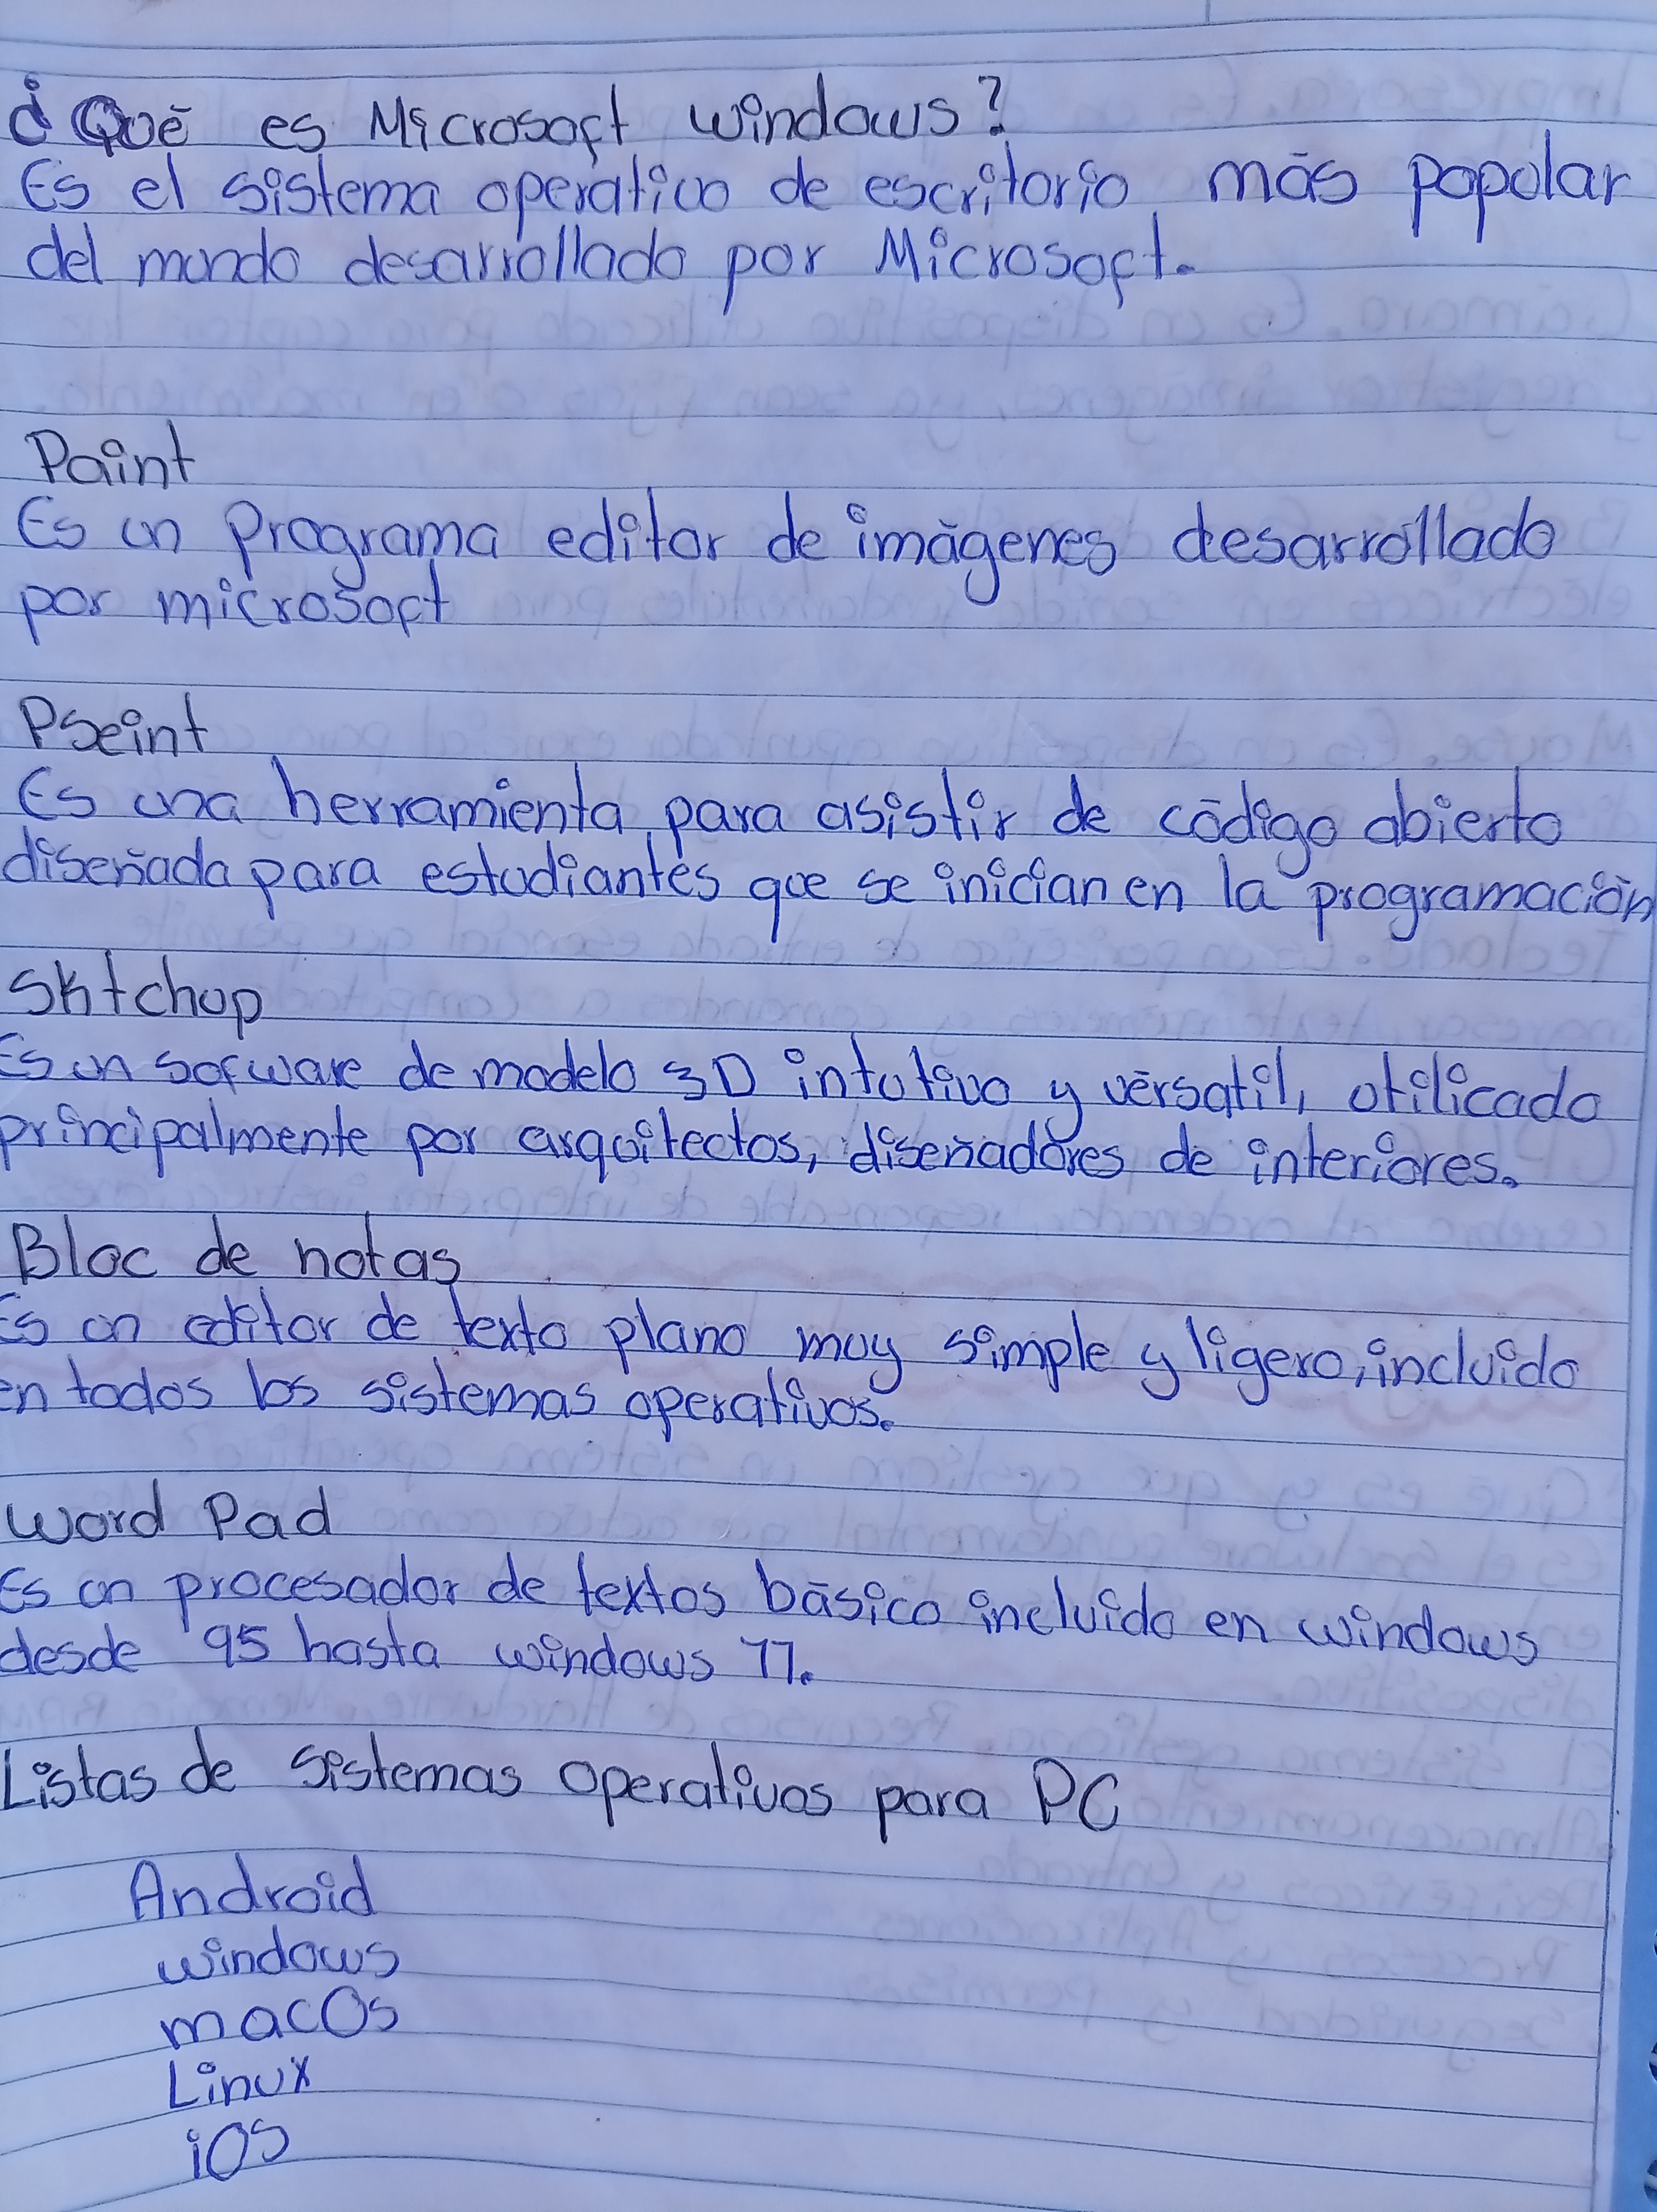 ¿Qué es Microsoft windows?
Es el sistema operativo de escritorio más popular
del mundo desarrollado por Microsoft.
Paint
Es un Programa editor de imágenes desarrollado
por microsoft
PSeint
Es una herramienta para asistir de código abierto
diseñada para estudiantes que se inician en la programación
Sktchup
Es un sofware de modelo 3D intutivo y versatil, utilicado
principalmente por arquitectos, diseñadores de interiores.
Bloc de notas
Es un editor de texto plano muy simple y ligero, incluido
en todos los sistemas operativos.
Word Pad
Es un procesador de textos básico incluido en windows
desde 95 hasta windows 11.
Listas de sistemas operativos para PC
Android
windows
macOs
Linux
iOS